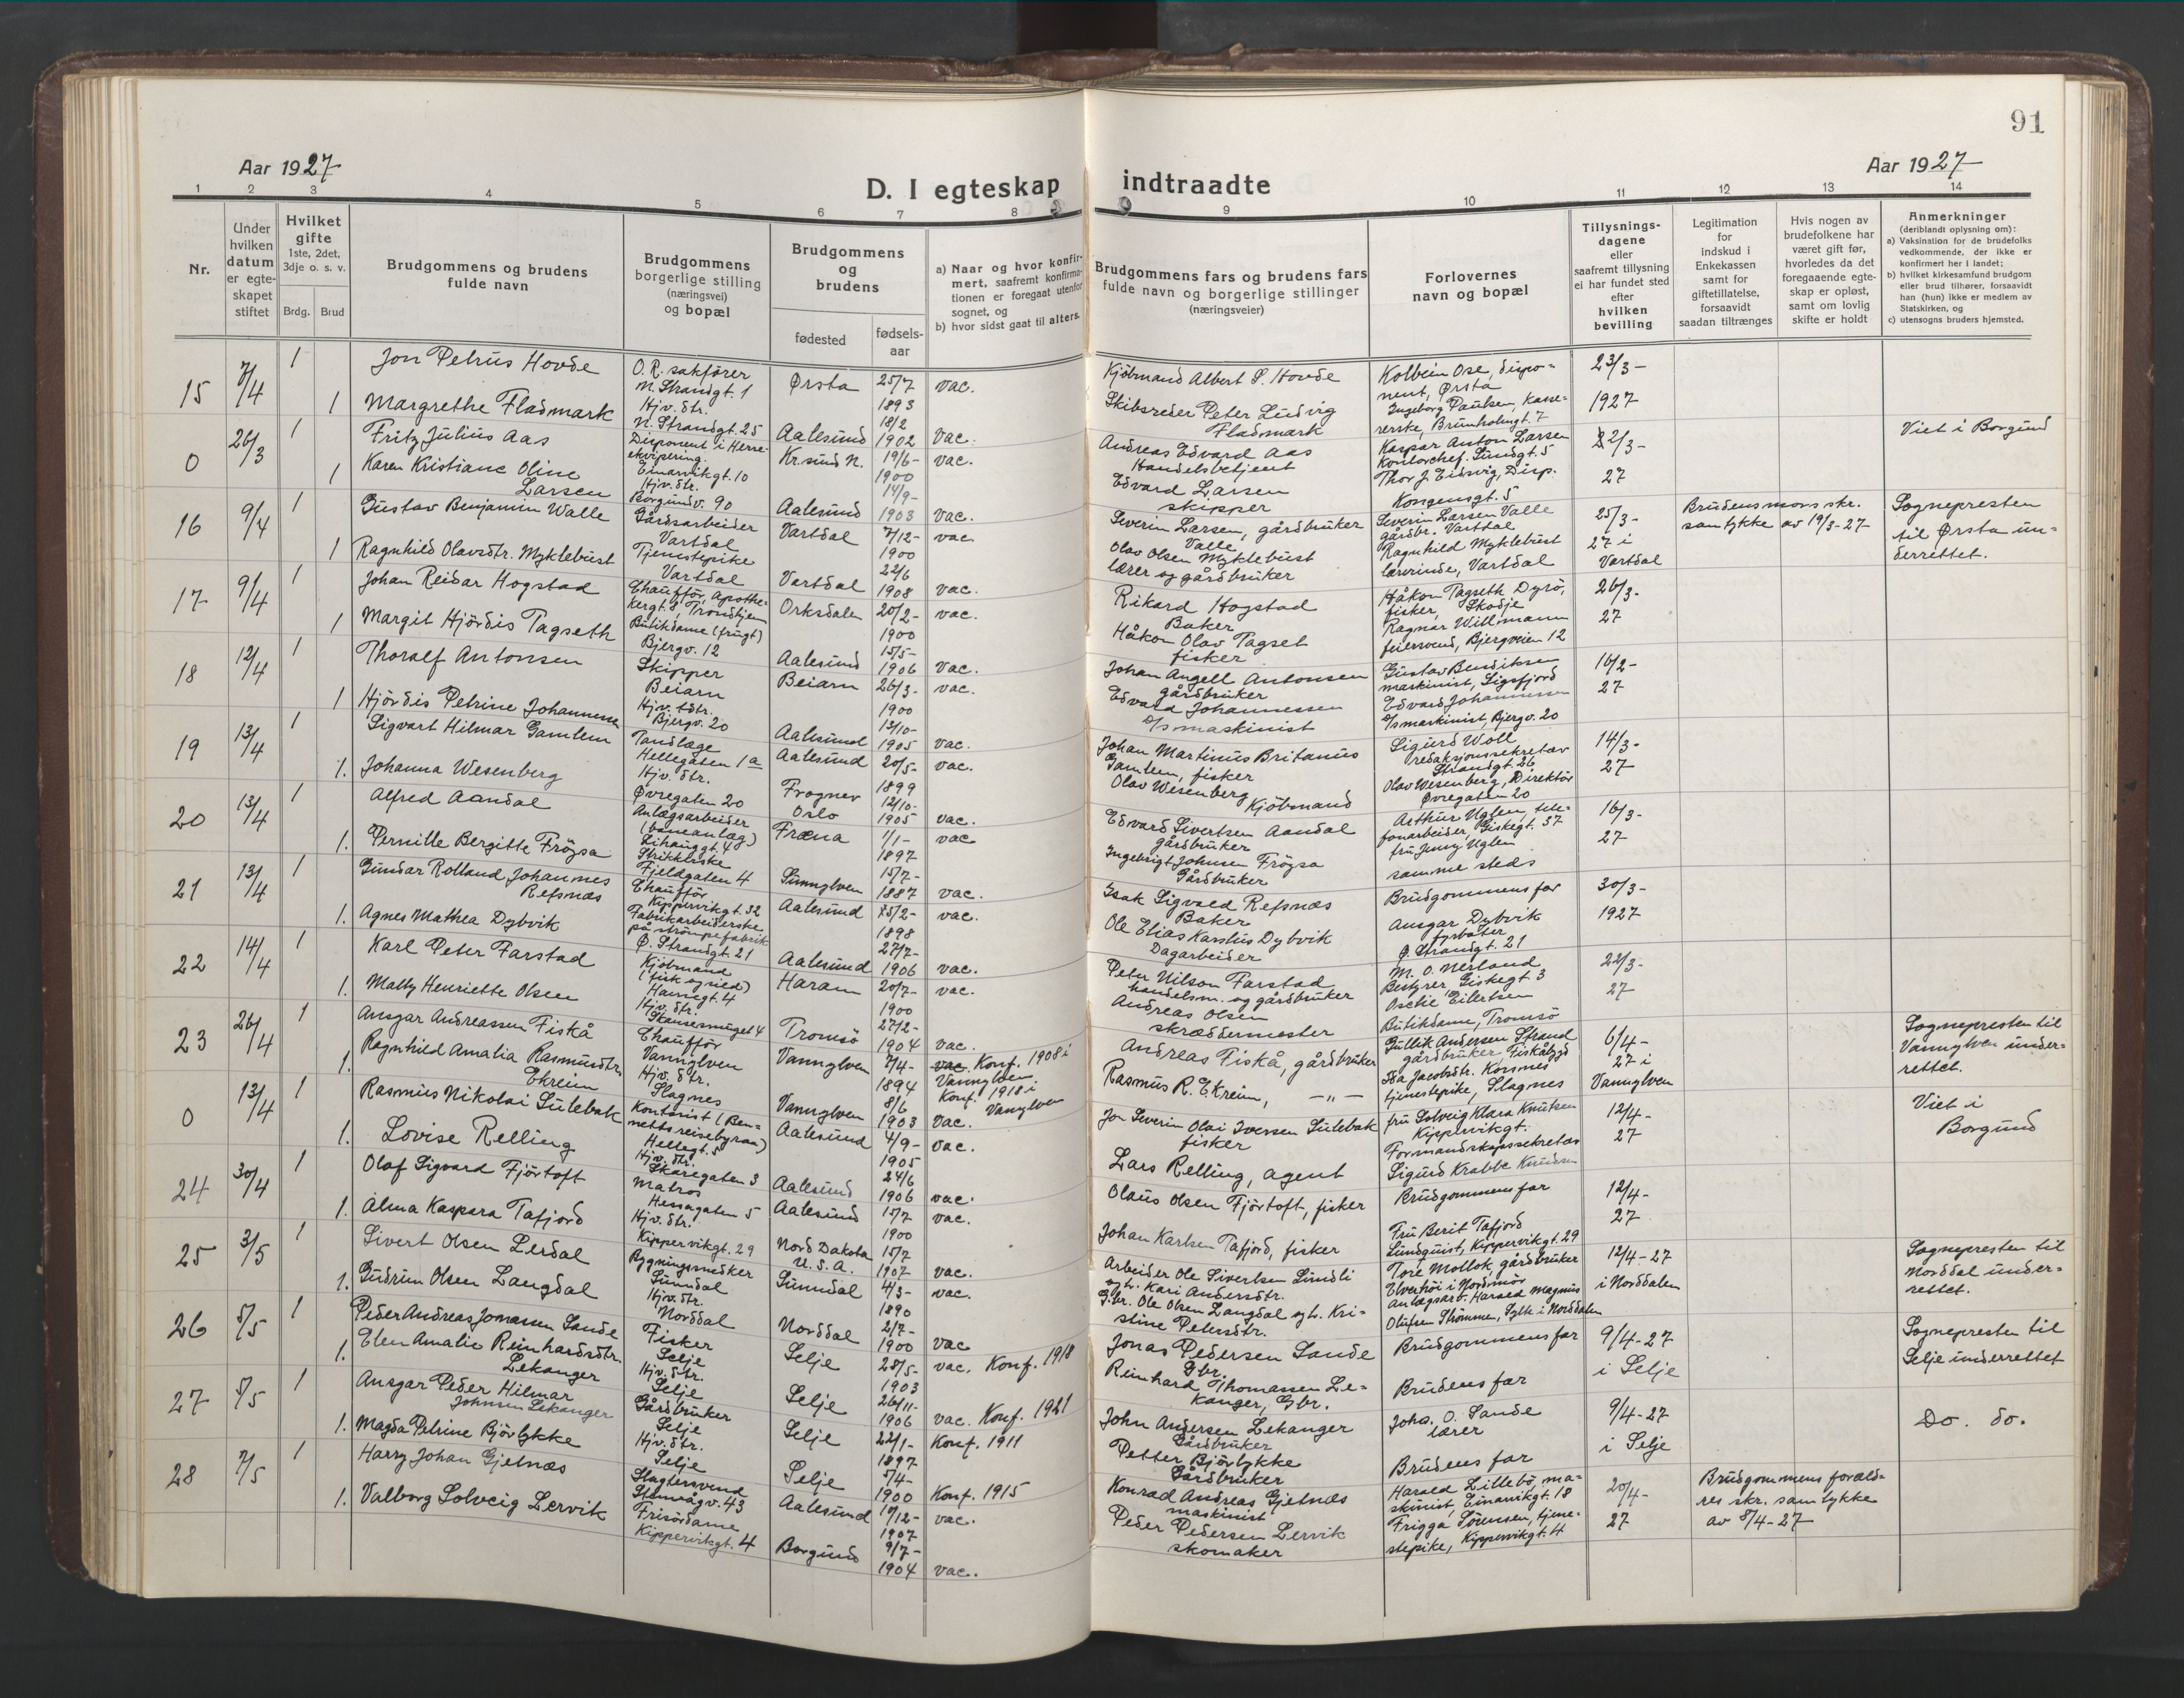 91
Aar 1927
D. I egteskap indtraadte
Aar 1927
1 2 3 4 5 6 7 8 9 10 11 12 13 14
Nr.
Under hvilken datum er egteskapet stiftet
Hvilket gifte 1ste, 2det, 3dje o. s. v.
Brdg. Brud
Brudgommens og brudens fulde navn
Brudgommens borgerlige stilling (næringsvei) og bopæl
Brudgommens og brudens
fødested
fødselsaar
a) Naar og hvor konfirmert, saafremt konfirmationen er foregaat utenfor sognet, og
b) hvor sidst gaat til alters.
Brudgommens fars og brudens fars fulde navn og borgerlige stillinger (næringsveier)
Forlovernes navn og bopæl
Tillysningsdagene eller saafremt tillysning ei har fundet sted efter hvilken bevilling
Legitimation for indskud i Enkekassen samt for giftetillatelse, forsaavidt saadan tiltrænges
Hvis nogen av brudefolkene har været gift før, hvorledes da det foregaaende egteskap er opløst, samt om lovlig skifte er holdt
Anmerkninger (deriblandt oplysning om):
a) Vaksination for de brudefolks vedkommende, der ikke er konfirmert her i landet;
b) hvilket kirkesamfund brudgom eller brud tilhører, forsaavidt han (hun) ikke er medlem av Statskirken, og
c) utensogns bruders hjemsted.
15 7/4 1 Jon Petrus Hovde O.R. sakfører N. Strandgt. 1 Ørsta 25/7 1893 vac. Kjøbmand Albert P. Hovde Kolbein Ose, disponent, Ørsta 23/3-
1 Margrethe Fladmark Hjv. dtr. N. Strandgt. 25 Aalesund 18/2 1902 vac. Skibsreder Peter Ludvig Fladmark Ingeborg Paulsen, kasserske, Brunholmgt. 7 1927
0 26/3 1 Fritz Julius Aas Disponent i Herreekvipering. Einarvikgt. 10 Kr.sund N. 19/6- 1900 vac. Andreas Edvard Aas Handelsbetjent Kaspar Anton Larsen Kontorchef. Lundgt. 5 22/3- Viet i Borgund
1 Karen Kristiane Oline Larsen Hjv. dtr. Borgundv. 90 Aalesund 14/9- 1903 vac. Edvard Larsen skipper Thor J. Eidsvig, Disp. Kongensgt. 5 27
16 9/4 1 Gustav Benjamin Walle Gårdsarbeider Vartdal Vartdal 7/12- 1900 vac. Severin Larsen, gårdbruker Valle Severin Larsen Valle gårdbr. Vartdal 25/3- Brudens mors skr. samtykke av 19/3-27 Sognepresten til Ørsta underrettet.
1 Ragnhild Olavsdtr. Myklebust Tjenestepike Vartdal Vartdal 22/6 1908 vac. Olav Olsen Myklebust lærer og gårdbruker Ragnhild Myklebust lærerinde, Vartdal 27 i Vartdal
17 9/4 1 Johan Reidar Hogstad Chauffør, Apothekergt. 8 Trondhjem Orksdalen 20/2- 1900 vac. Rikard Hogstad Baker Håkon Tagseth Dyrö, fisker, Skodje 26/3-
1 Margit Hjördis Tagseth Butikdame (frugt) Bjergv. 12 Aalesund 15/5- 1906 vac. Håkon Olav Tagset fisker Ragnar Willmann feiersvend, Bjergveien 12 27
18 12/4 1 Thoralf Antonsen Skipper Beiarn Beiarn 26/3- 1900 vac. Johan Angell Antonsen gårdbruker Gustav Bendiksen maskinist, Ligsfjord 16/2-
1 Hjördis Petrine Johannessen Hjv. dtr. Bjergv. 20 Aalesund 13/10- 1905 vac. Edvard Johannessen d/s maskinist Edvard Johannessen d/s maskinist, Bjergv. 20 27
19 13/4 1 Sigvart Hilmar Gamlem Tandlæge Hellegaten 1a Aalesund 20/5- 1899 vac. Johan Martinus Britanus Gamlem, fisker Sigurd Woll redaksjonssekretær Strandgt. 26 14/3-
1. Johanna Wesenberg Hjv. dtr. Øvregaten 20 Frogner Oslo 12/10- 1905 vac. Olav Wesenberg Kjöbmand Olav Wesenberg, Direktör Øvregaten 20 27
20 13/4 1 Alfred Aandal Anlægsarbeider (baneanlæg) Lihauggt. 48 Fræna 1/1- 1897 vac Edvard Sivertsen Aandal gårdbruker Arthur Uglen, telefonarbeider, Giskegt. 37 16/3-
1. Pernille Bergitte Fröysa Strikkerske Fjeldgaten 4 Sunnylven 15/7- 1887 vac. Ingebrigt Johnsen Fröysa Gårdbruker fru Jenny Uglen samme steds 27
21 13/4 1 Gundar Rolland Johannes Refsnæs Chauffør Kippervikgt. 32 Aalesund 15/2- 1898 vac. Isak Sigvald Refsnæs Baker Brudgommens far 30/3-
1. Agnes Mathea Dybvik Fabrikarbeiderske på strømpefabrik Ø. Strandgt. 21 Aalesund 27/7- 1906 vac. Ole Elias Karstius Dybvik Dagarbeider Ansgar Dybvik fyrbøter Ø. Strandgt. 21 1927
22 14/4 1 Karl Peter Farstad Kjøbmand (fisk og sild) Havnegt. 4 Haram 20/7- 1900 vac. Peter Nilson Farstad handelsm. og gårdbruker M. O. Nerland Bestyrer, Giskegt. 3 22/3-
1. Mally Henriette Olsen Hjv. dtr. Skansesmuget 4 Tromsö 27/2- 1904 vac. Andreas Olsen skræddermester Oschie Eilertsen Butikdame, Tromsö 27
23 26/4 1 Ansgar Andreassen Fiskå Chauffør Vannylven Vannylven 7/4- 1894 vac. Konf. 1908 i Vannylven Andreas Fiskå, gårdbruker Gullik Andersen Strand gårdbruker, Fiskåbygd 6/4- Sognepresten til Vannylven underrettet.
1. Ragnhild Amalia Rasmusdtr. Ekreim Hjv. dtr. Slagnes Vannylven 8/6 1903 Konf. 1918 i Vannylven vac. Rasmus R. Ekreim, -"- Ida Jacobsdtr. Korsnes tjenestepike, Slagnes 27 i Vannylven
0 13/4 1 Rasmus Nikolai Sulebak Kontorist (Bennetts reisebyraa) Hellegt. 5 Aalesund 4/9- 1905 vac. Jon Severin Olai Iversen Sulebak fisker fru Solveig Klara Knutsen Kippervikgt. 12/4- Viet i Borgund
1. Lovise Relling Hjv. dtr. Skaregaten 3 Aalesund 24/6 1906 vac. Lars Relling, agent Formandskapssekretær Sigurd Krabbe Knudsen 27
24 30/4 1 Olaf Sigvard Fjörtoft Matros Hessagaten 5 Aalesund 15/7 1900 vac. Olaus Olsen Fjörtoft, fisker Brudgommens far 12/4-
1. Alma Kaspara Tafjord Hjv. dtr. Kippervikgt. 29 Nord Dakota U.S.A. 15/7 1907 vac. Johan Karlsen Tafjord, fisker Fru Berit Tafjord Lundquist, Kippervikgt. 29 27
25 3/5 1 Sivert Olsen Lerdal Bygningssnedker Sunndal Sunndal 4/3- 1890 vac. Arbeider Ole Sivertsen Lundli og h. Kari Andersdtr. Tore Mollok, gårdbruker Elverhöi i Nordmör 12/4-27 i Norddalen Sognepresten til Norddal underrettet.
1. Gudrun Olsen Langdal Hjv. dtr. Norddal Norddal 2/7- 1900 vac G.br. Ole Olsen Langdal og h. Kristine Petersdtr. Anlægsarb. Harald Magnus Olufsen Strömmen, Sylte i Norddalen
26 5/5 1 Peder Andreas Jonassen Sande Fisker Selje Selje 28/5- 1903 vac. Konf. 1918 Jonas Pedersen Sande Gbr. Brudgommens far 9/4-27 i Selje Sognepresten til Selje underrettet
1. Elen Amalie Reinhardsdtr. Lekanger Hjv. dtr. Selje Selje 26/11- 1906 vac. Konf. 1921 Reinhard Thomassen Lekanger, Gbr. Brudens far
27 5/5 1 Ansgar Peder Hilmar Johnsen Lekanger Gårdbruker Selje Selje 22/1- 1897 Konf. 1911 John Andersen Lekanger Gårdbruker Johs. O. Sande lærer 9/4-27 i Selje Do. do.
1. Magda Petrine Bjørlykke Hjv. dtr. Selje Selje 5/4- 1900 Konf. 1915 Petter Bjørlykke Gårdbruker Brudens far
28 7/5 1 Harry Johan Gjetnæs Slagtersvend Stenvågv. 43 Aalesund 17/12- 1907 vac. Konrad Andreas Gjetnæs maskinist Harald Lillebø, maskinist, Einarvikgt. 18 20/4- Brudgommens forældres skr. samtykke av 8/4-27
1. Valborg Solveig Lervik Frisördame Kippervikgt. 4 Borgund 9/7- 1904 vac. Peder Pedersen Lervik skomaker Frigga Sørensen, tjenestepike, Kippervikgt. 4 27